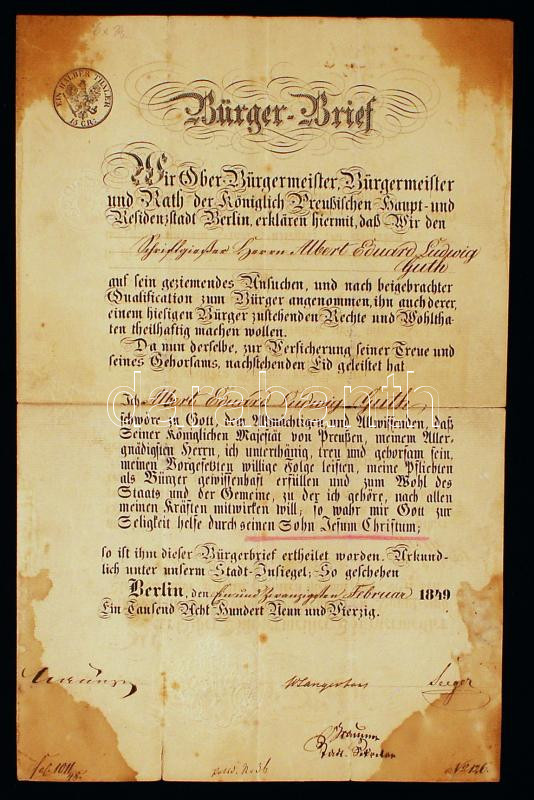 EIN HALBER THALER
15 GR.
Bürger-Brief
Wir Ober-Bürgermeister, Bürgermeister
und Rath der Königlich Preußischen Haupt- und
Residenzstadt Berlin, erklären hiermit, daß Wir den
Schriftgießer Herrn Albert Eduard Ludwig
Guth
auf sein geziemendes Ansuchen, und nach beigebrachter
Qualification zum Bürger angenommen, ihn auch derer,
einem hiesigen Bürger zustehenden Rechte und Wohltha-
ten theilhaftig machen wollen.
Da nun derselbe, zur Versicherung seiner Treue und
seines Gehorsams, nachstehenden Eid geleistet hat
Ich Albert Eduard Ludwig Guth,
schwöre zu Gott, dem Allmächtigen und Allwissenden, daß
Seiner Königlichen Majestät von Preußen, meinem Aller-
gnädigsten Herrn, ich unterthänig, treu und gehorsam sein,
meinen Vorgesetzten willige Folge leisten, meine Pflichten
als Bürger gewissenhaft erfüllen und zum Wohl des
Staats und der Gemeine, zu der ich gehöre, nach allen
meinen Kräften mitwirken will; so wahr mir Gott zur
Seligkeit helfe durch seinen Sohn Jesum Christum;
so ist ihm dieser Bürgerbrief ertheilet worden. Urkund-
lich unter unserm Stadt-Insiegel; So geschehen
Berlin, den ein und zwanzigsten Februar 1849
Ein Tausend Acht Hundert Neun und Vierzig.
darabanth
WLangerhans
Seeger
Stadt. Sekretar